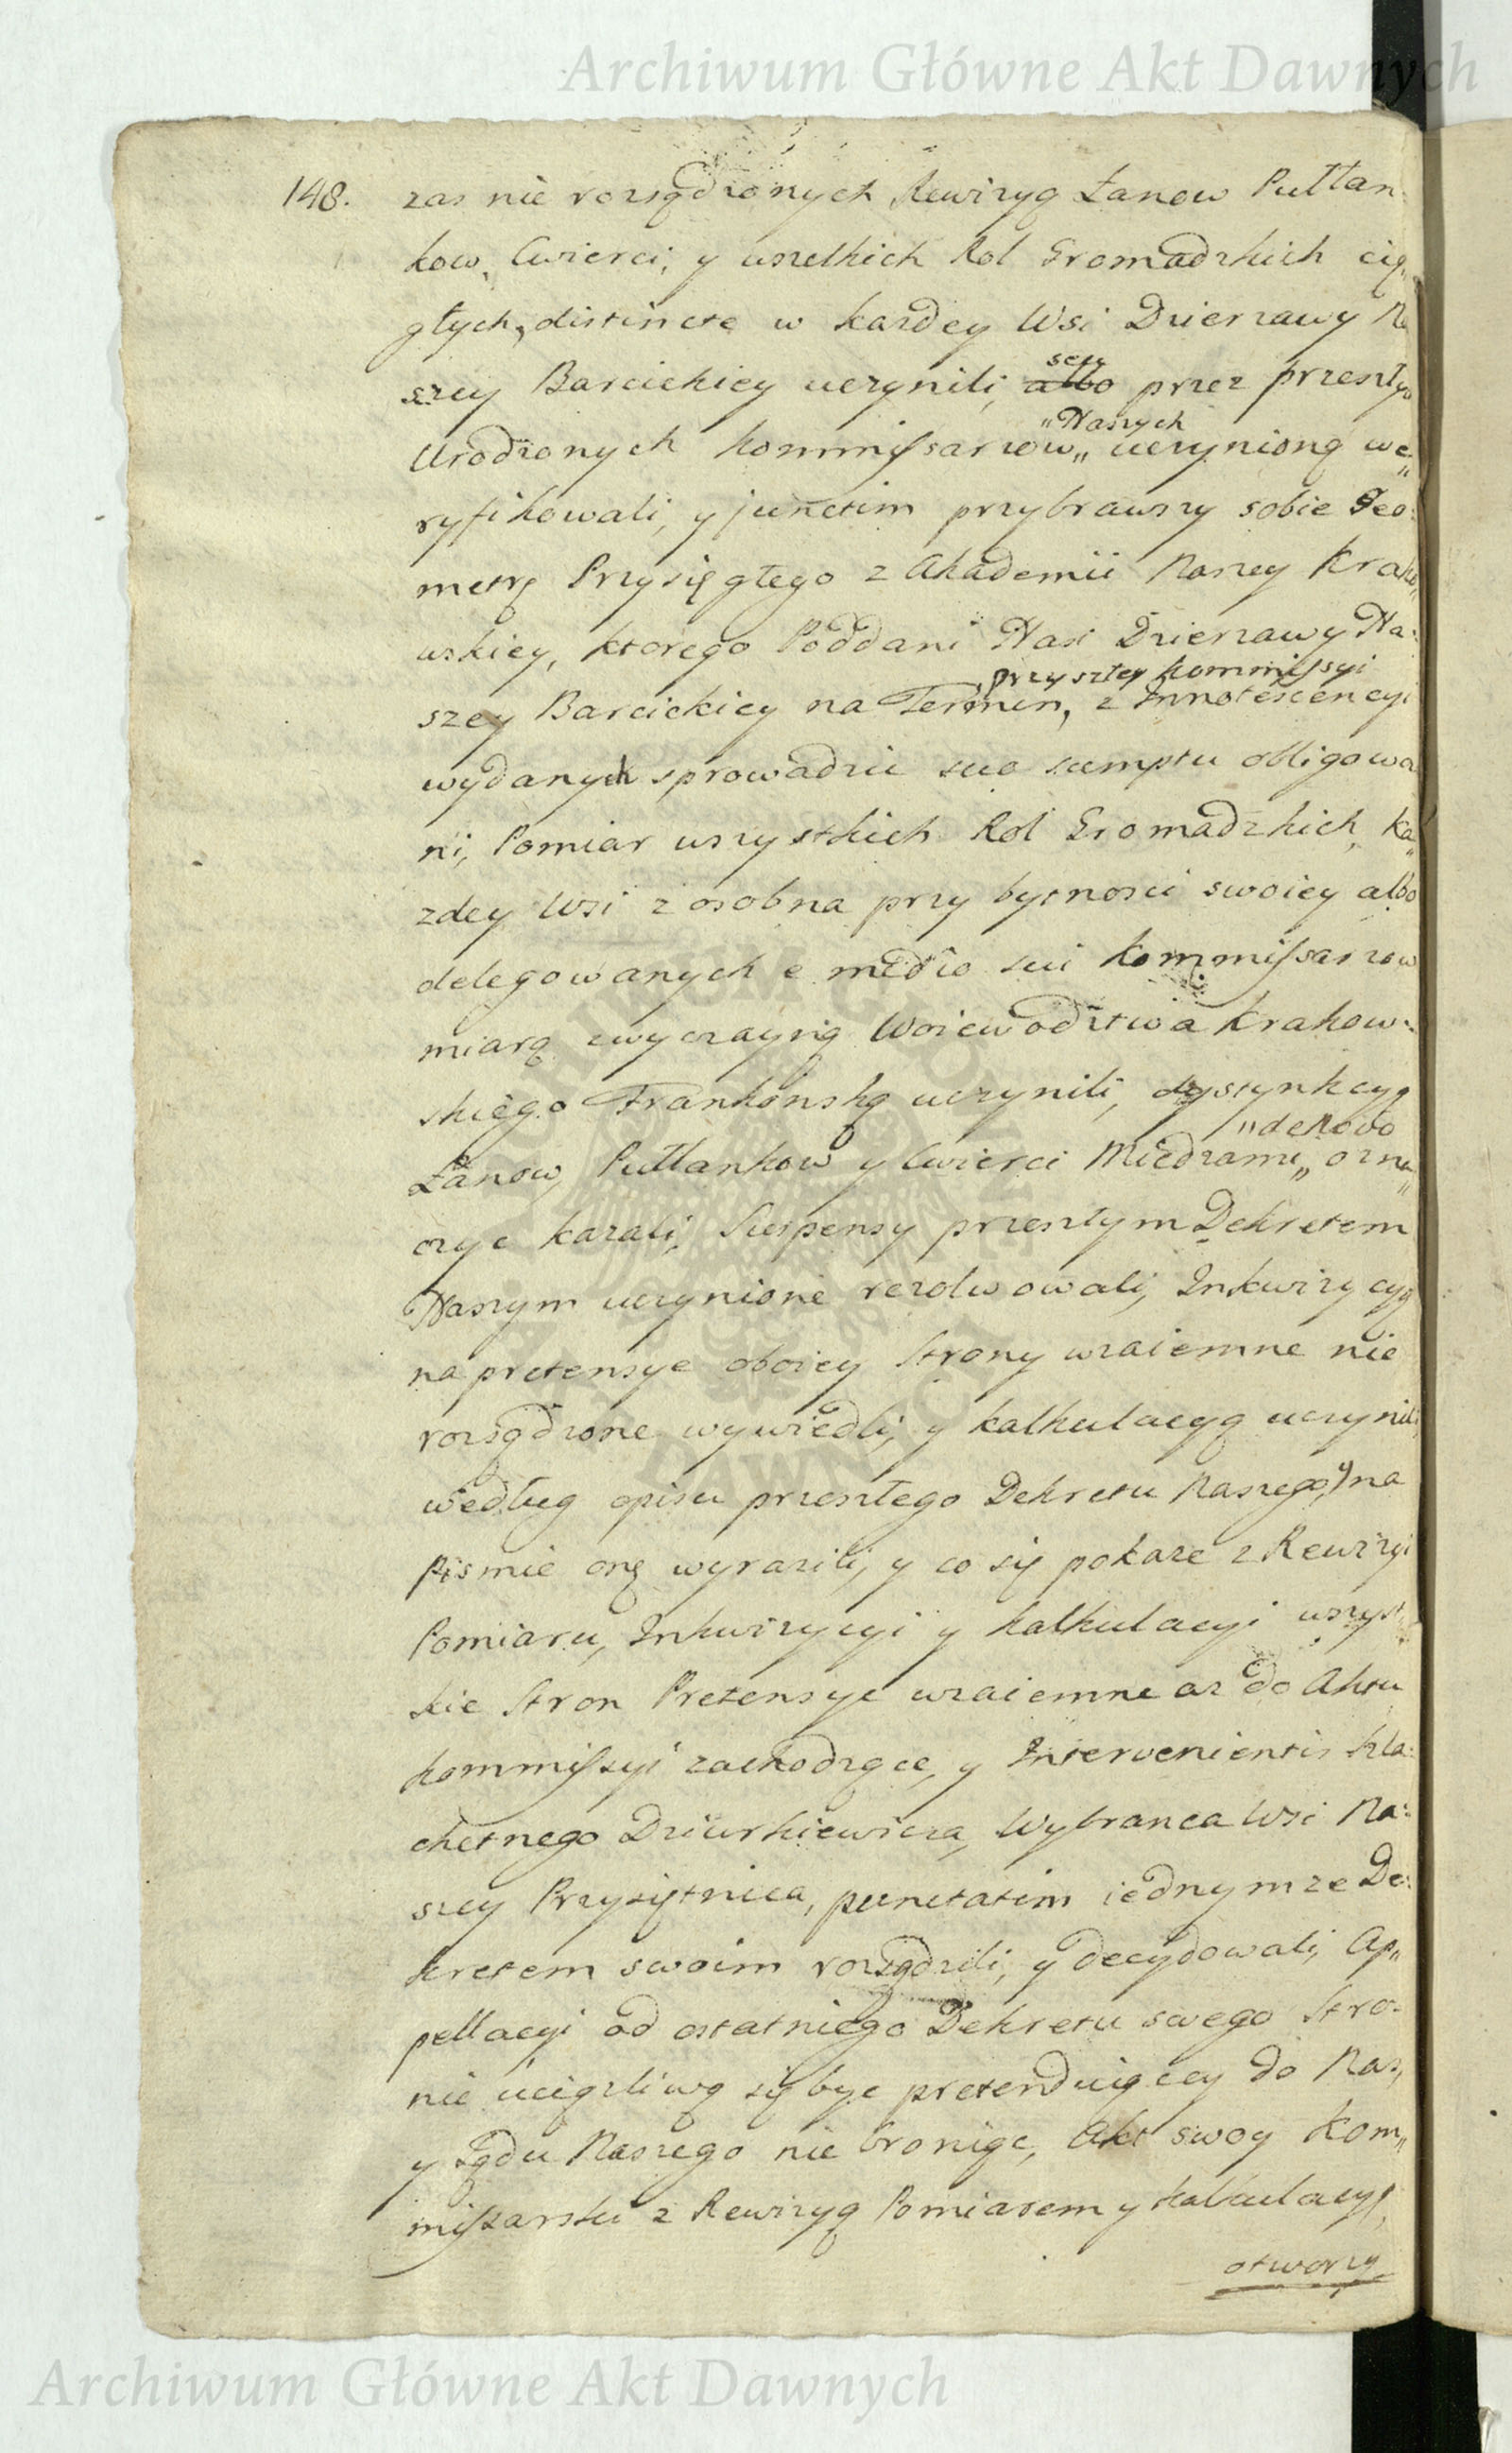 Archiwum Główne Akt Dawnych
148.
zas nie rozsądzonych Rewizyą Łanow Pułłan„
kow, Cwierci, y wszelkich Rol Gromadzkich cią„
głych, distincte w kazdey Wsi Dzierzawy Na
szey Barcickiey uczynili, albo przez przeszłyc
seu
Urodzonych Kommissarzow„ uczynioną we„
„Naszych
ryfikowali, y junctim przybrawszy sobie Geo:
metrę Przysięgłego z Akademii Naszey Krako„
wskiey, ktorego Poddani Nasi Dzierzawy Na:
przyszłey Kommissyi
szey Barcickiey na Termin, z Innotescencyi
wydanych sprowadzic suo sumptu obligowa
ni, Pomiar wszystkich Rol Gromadzkich, ka„
zdey Wsi z osobna przy bytnosci swoiey albo
delegowanych e medio sui Kommissarzow
miarą zwyczayną Woiewodztwa Krakow:
skiego Frankońską uczynili, dystynkcyą
„denovo
Łanow, Pułłankow y Cwierci Miedzami„ ozna„
czyc kazali, Suspensy przeszłym Dekretem
Naszym uczynione rezolwowali, Inkwizycyą
na pretensye oboiey Strony wzaiemne nie
rozsądzone wywiedli, y kalkulacyą uczynili,
według opisu przeszłego Dekretu Naszego, y na
Pismie onę wyrazili, y co się pokaze z Rewizyi
Pomiaru, Inkwizycyi y Kalkulacyi wszyst„
kie Stron Pretensye wzaiemne az do Aktu
Kommissyi zachodzące, y Intervenientis Szla:
chetnego Dziurkiewicza, Wybranca Wsi Na:
szey Przysietnica, punctatim iednymze De:
kretem swoim rozsądzili, y decydowali, Ap„
pellacyi od ostatniego Dekretu swego Stro-
nie uciązliwą się byc pretenduiącey do Nas,
y Sądu Naszego nie broniąc, Akt swoy Kom„
missarski z Rewizyą Pomiarem y Kalkulacyą,
otworzy
Archiwum Główne Akt Dawnych